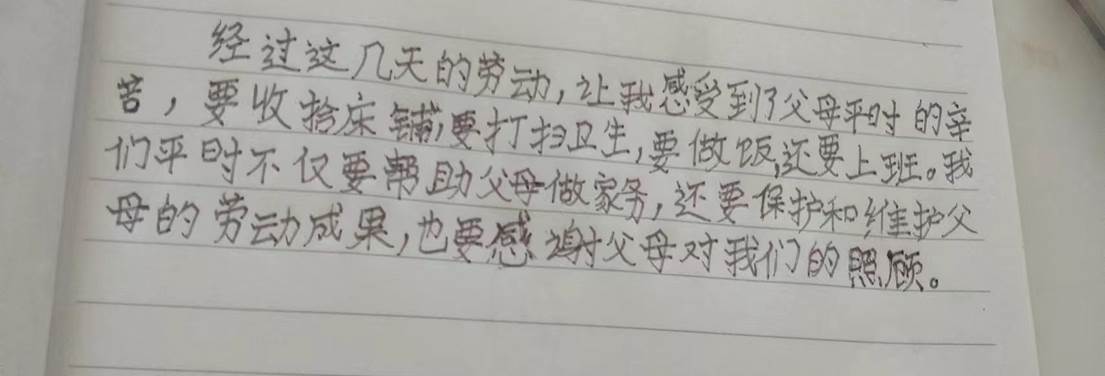 经过这几天的劳动,让我感受到了父母平时的辛
苦,要收拾床铺,要打扫卫生,要做饭,还要上班。我
们平时不仅要帮助父母做家务,还要保护和维护父
母的劳动成果,也要感谢父母对我们的照顾。